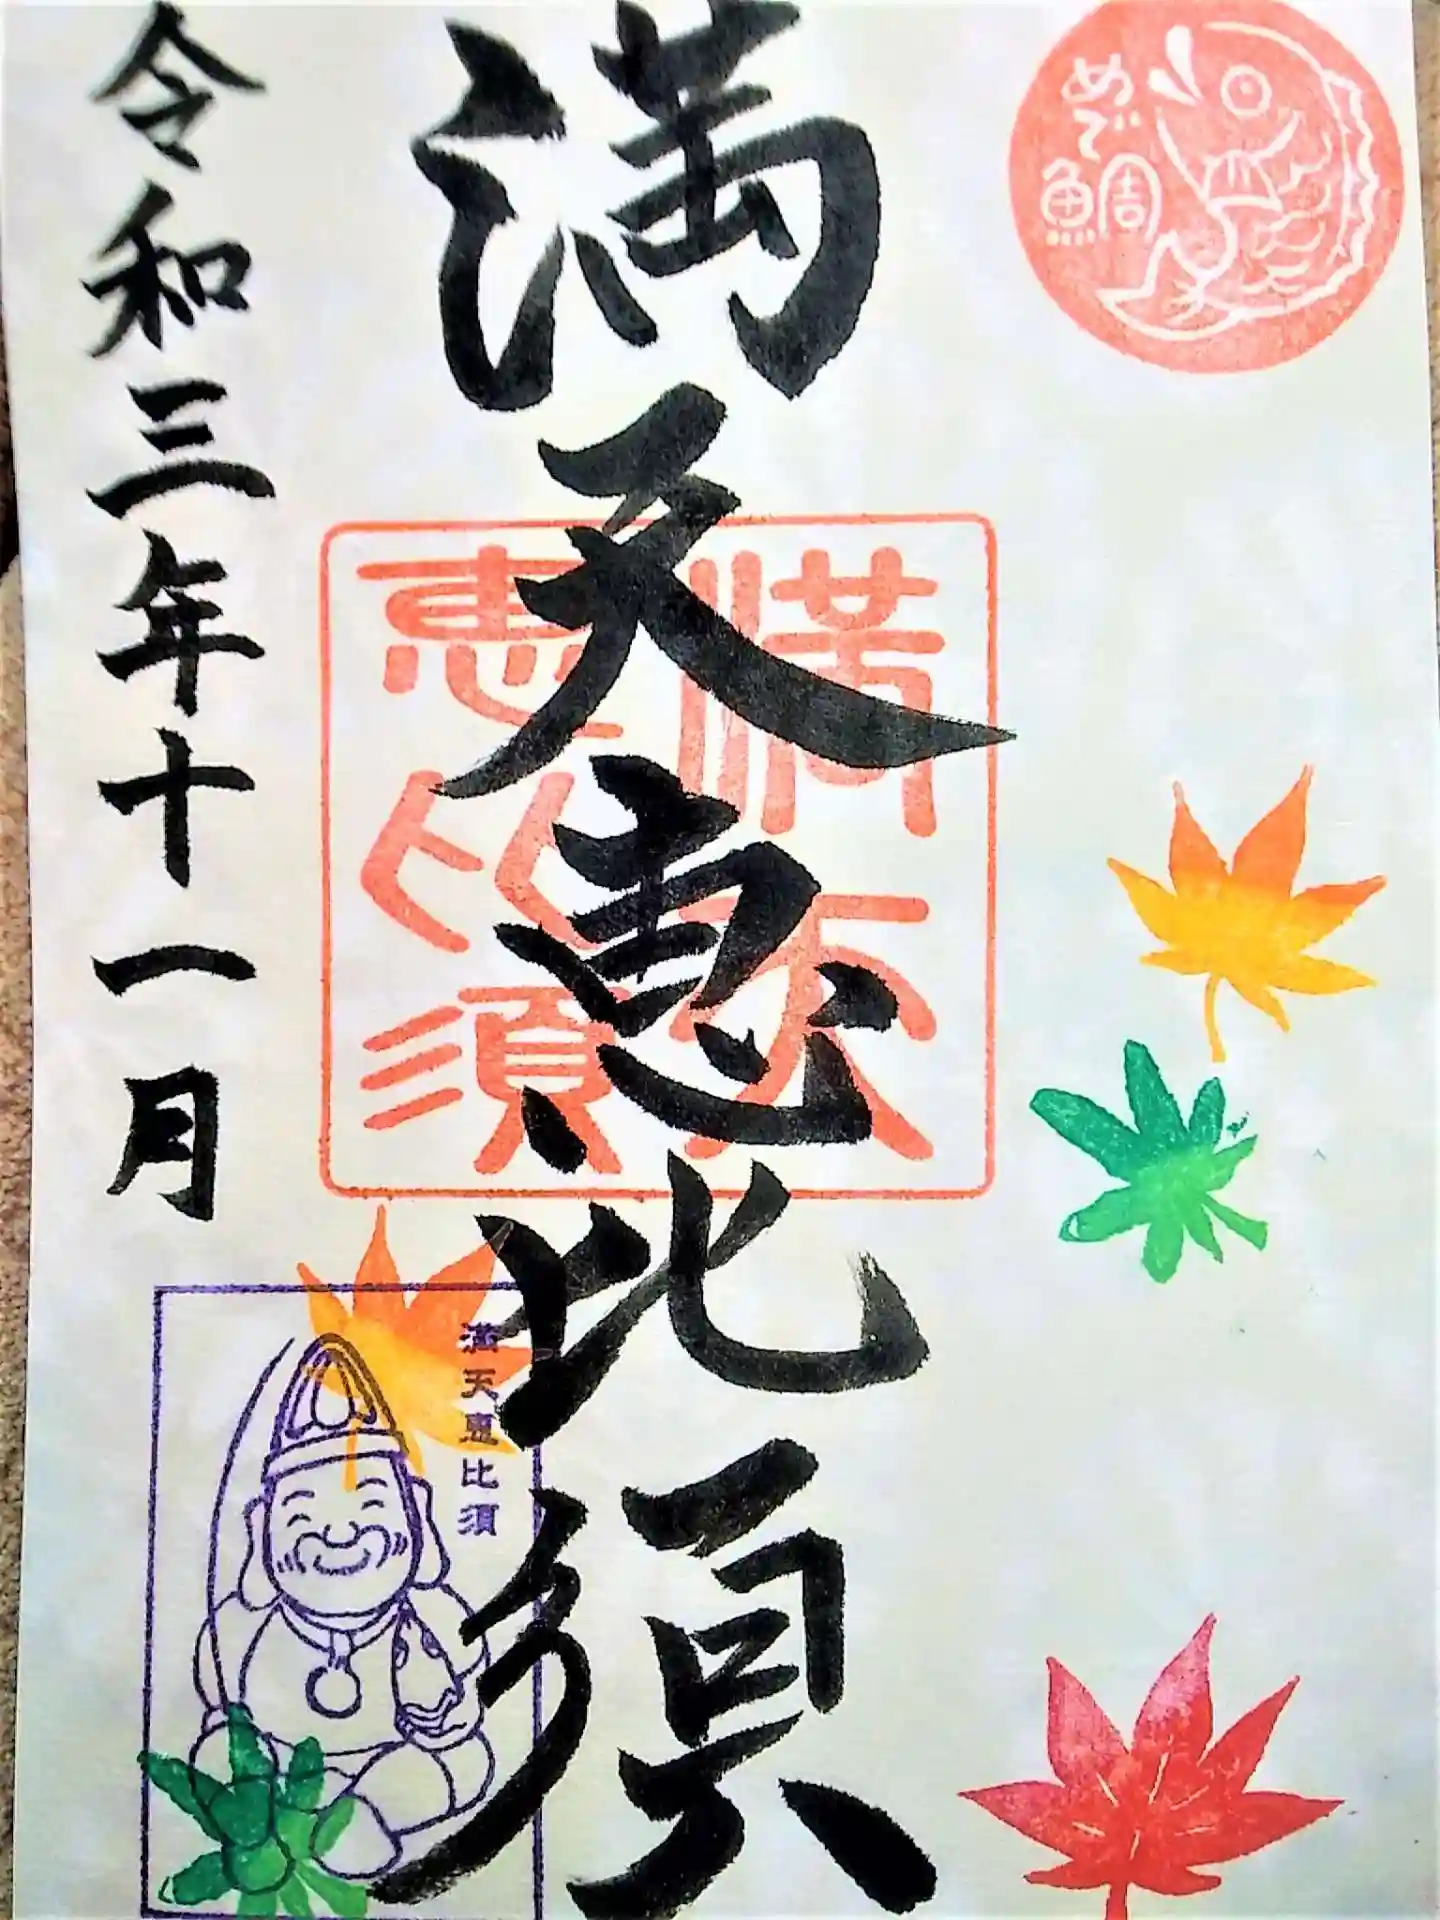 めで
鯛
満天恵比須
満天
恵比須
満天恵比須
令和三年十一月